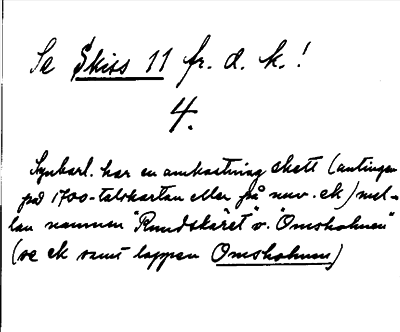 Se Skiss 11 fr. d. k.!
4.
Synbarl. har en omkastning skett (antingen
på 1700-talskartan eller på nuv. ek) mel-
lan namnen "Rundskäret" o. "Omsholmen"
(se ek samt lappen Omsholmen)